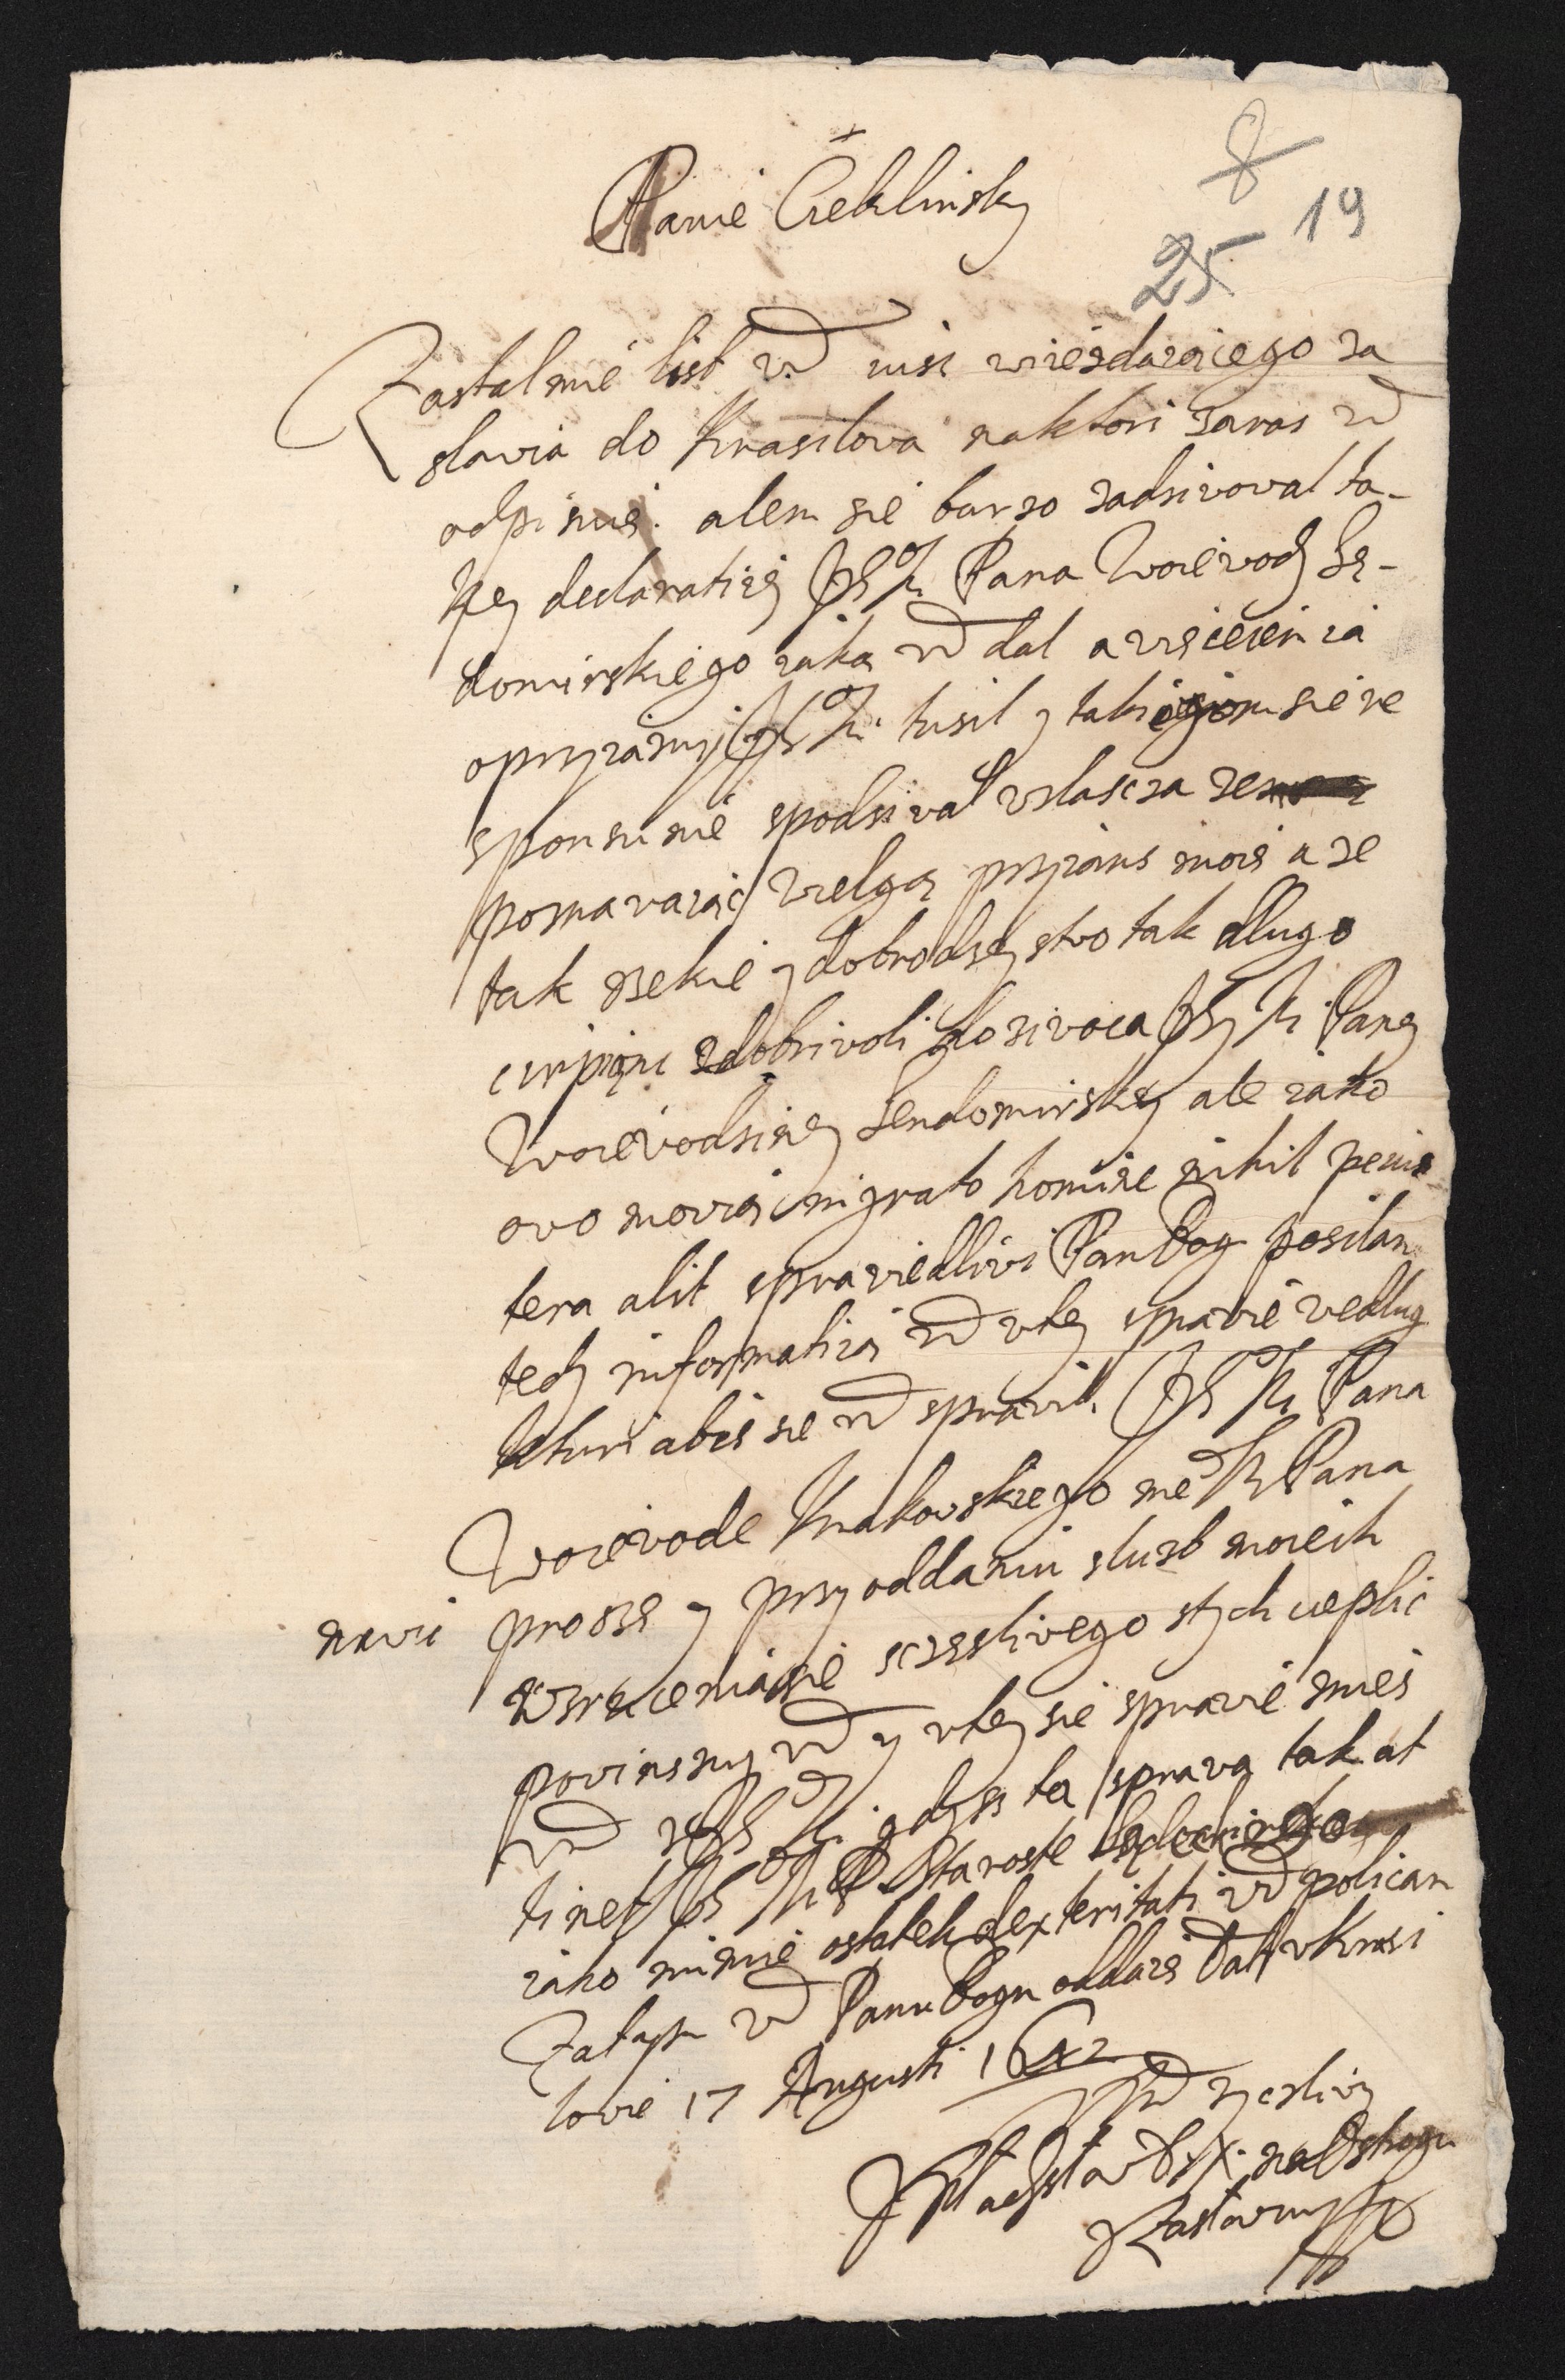 Panie Czeklinsky
8
19
25
Zastal mie list wm wiezdzaiącego za
slawia do Krasilowa naktori zaraz wm
odpisuię. alem sie barzo zadziwowal ta-
kiey declaratiiey JM Pana Woiewody Sę-
domirskiego iaką wm dal
o przyiazni JM tusil y takiegom sie re
sponsu nie spodziwal zwlascza ze
poznawaiąc wielgą przyiazn moię a ze
tak rzekę y dobrodzeystwo tak dlugo
cirpiąc zdobri woli do ziwota JM Paniey
Woiewodziney Sendomirskiey ale iako
owo mowią ingrato homine nihil peius
tera alit sprawiedliwi Pan Bog posilam
tedy informatią wm wtey sprawie wedlug
kturi abis sie wm sprawil. JM Pana
Woiewode Krakowskiego me M Pana
nawi proszę y przy oddaniu sluzb moich
wroceniasie sczęsliwego stych cieplic
powinszuy wm y wtey sie sprawie znies
wm z JM gdysz ta sprawa tak at
tinet JM P. Staroste
iako mienie ostatek dexteritati wm policam
Zatym wm Panu Bogu oddaię Dat w Krasi
lowie 17 Augusti 1642
wm zyczliwy
Wladyslaw D. X. na Ostrogu
y Zaslawiu